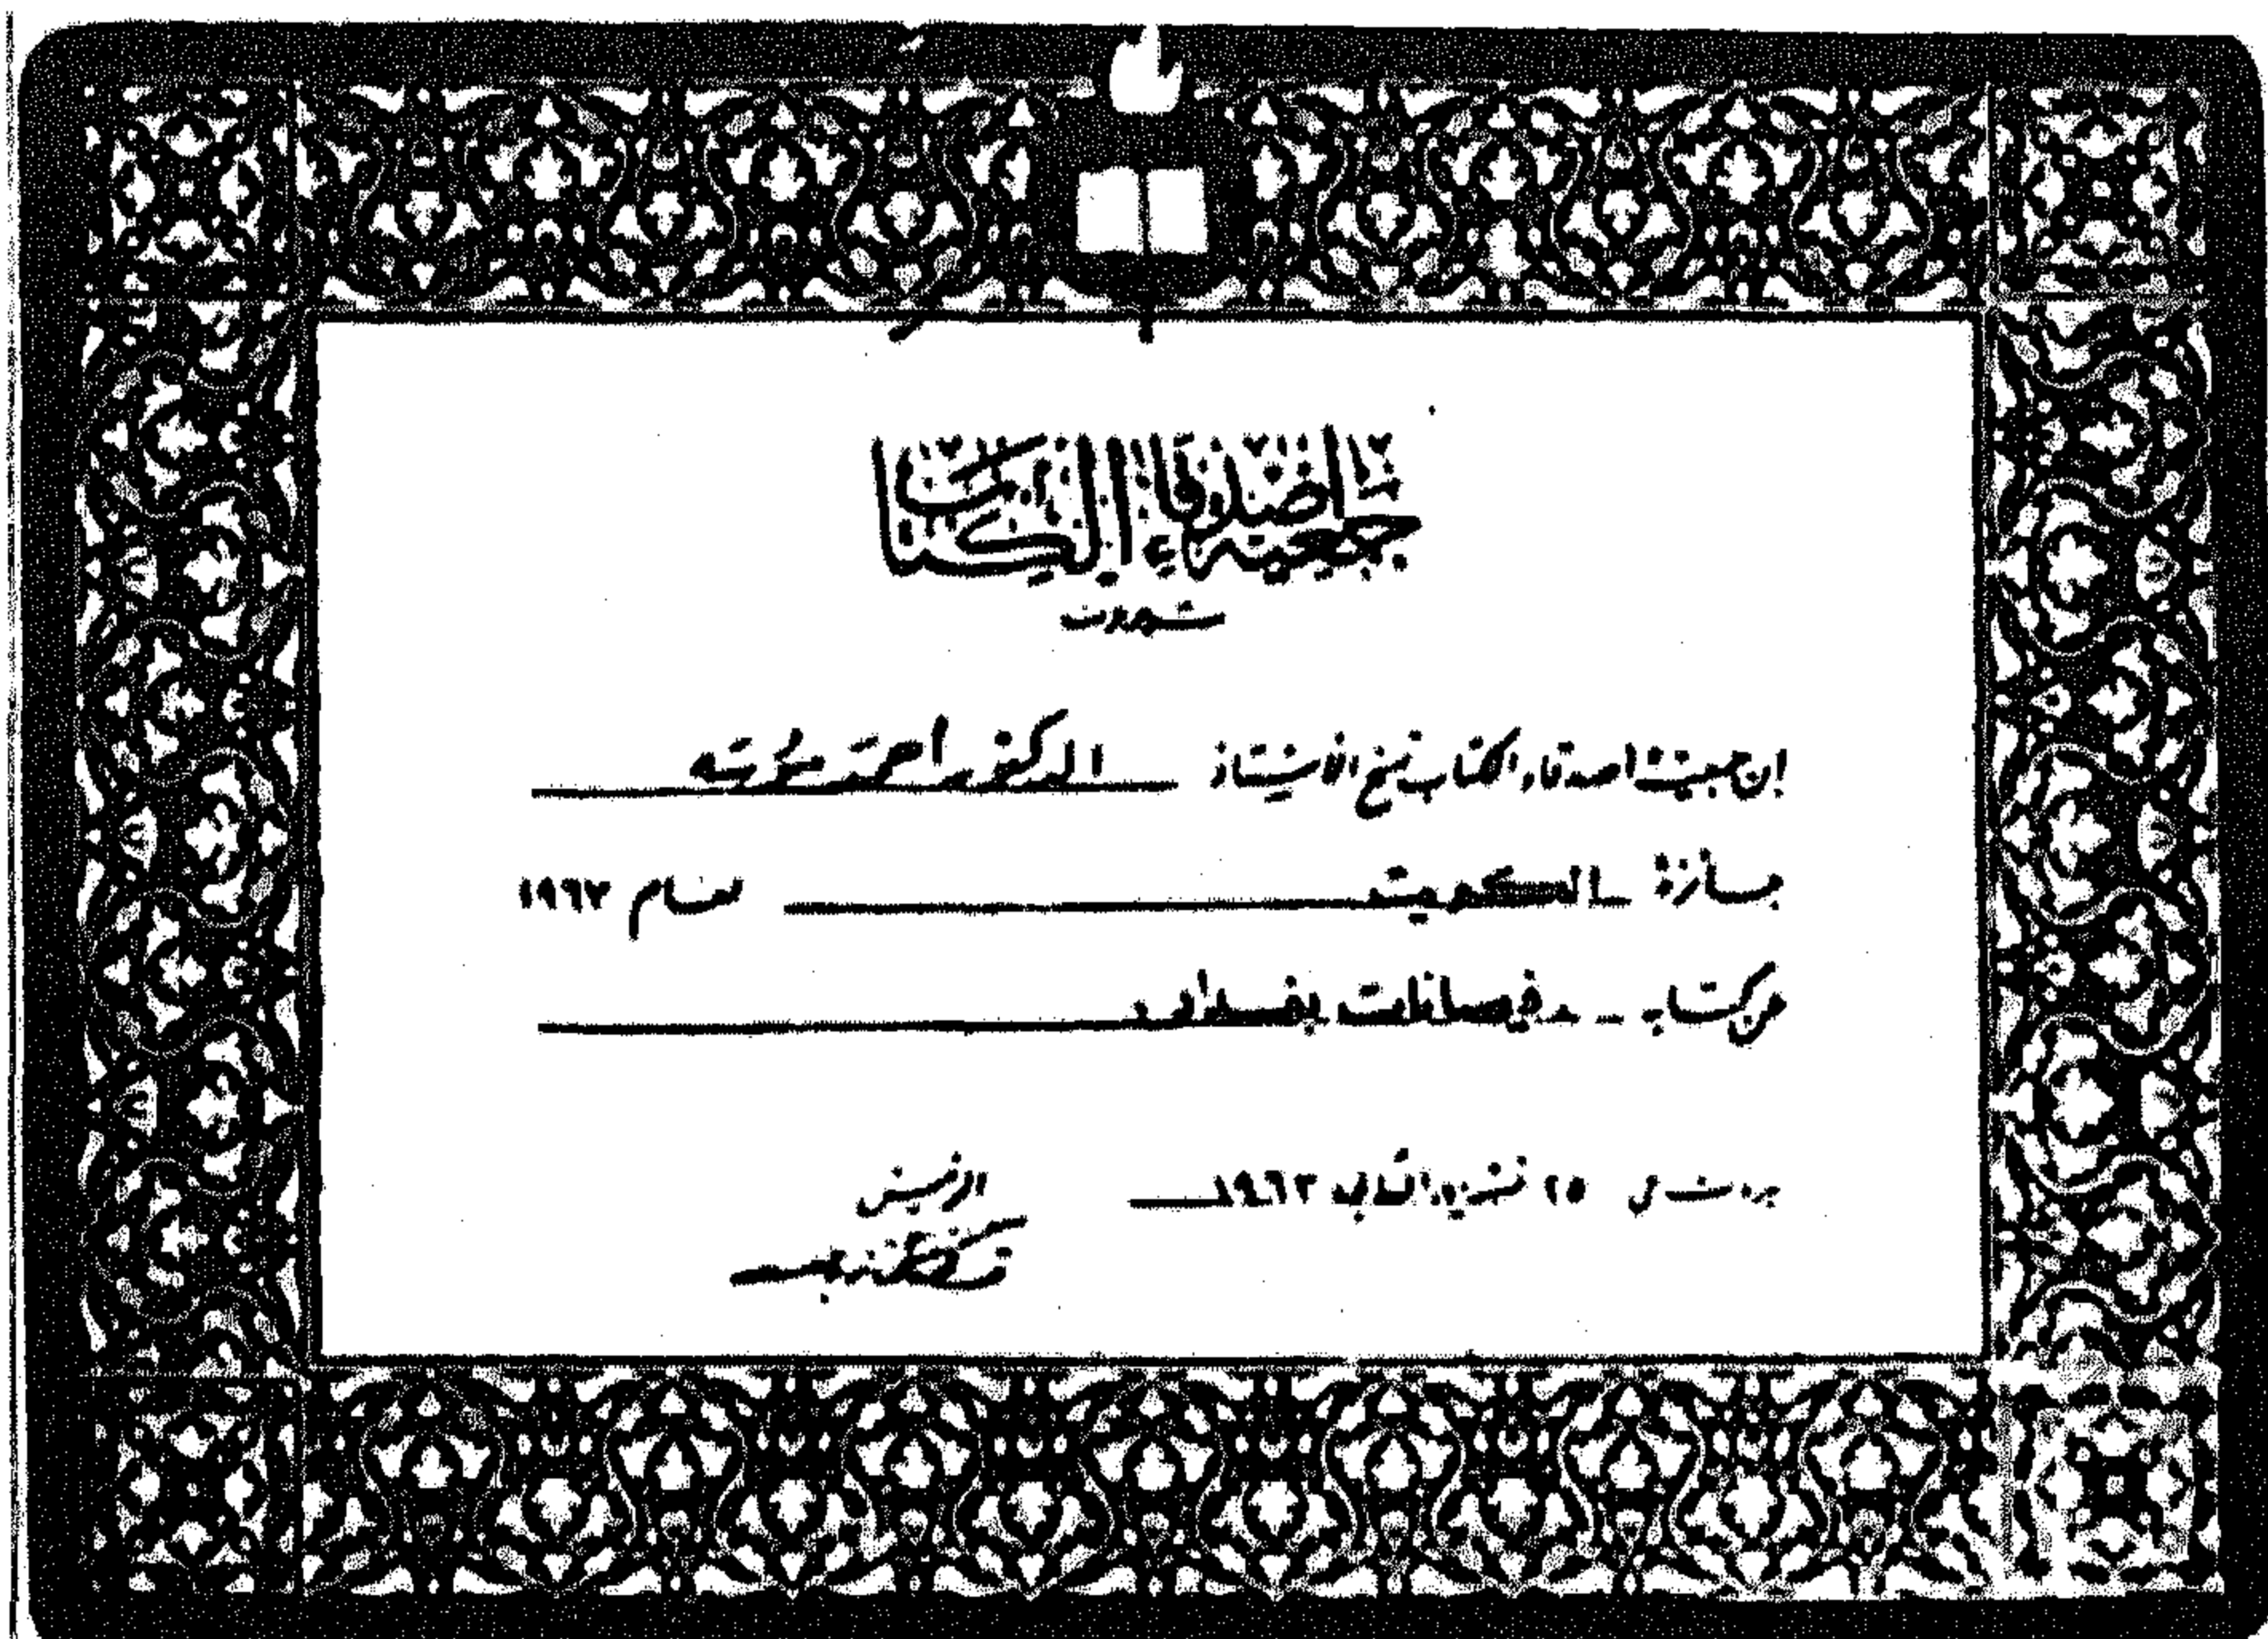 جمعية اصدقاء الكتاب
بيروت
ان جمعية اصدقاء الكتاب تمنح الاستاذ الدكتور احمد سوسه
جائزة الكويت لعام ١٩٦٣
عن كتاب فيضانات بغداد
بيروت في ٢٥ تشرين الثاني ١٩٦٣
الرئيس